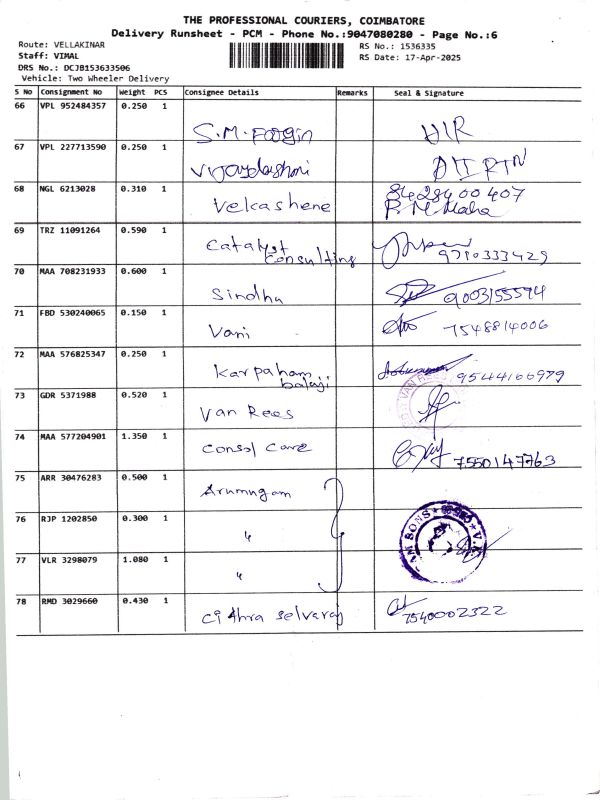 THE PROFESSIONAL COURIERS, COIMBATORE
Delivery Runsheet - PCM - Phone No.:9047080280 - Page No.:6
Route: VELLAKINAR
RS No.: 1536335
Staff: VIMAL
RS Date: 17-Apr-2025
DRS No.: DCJB153633506
Vehicle: Two Wheeler Delivery
S No Consignment No Weight PCS Consignee Details Remarks Seal & Signature
66 VPL 952484357 0.250 1 S.M.
67 VPL 227713590 0.250 1
68 NGL 6213028 0.310 1 Velkashene 8428400407
P. M Maha
69 TRZ 11091264 0.590 1 Catalyst
Consulting 9710333429
70 MAA 708231933 0.600 1 Sindhu 9003155594
71 FBD 530240065 0.150 1 Vani 7548814006
72 MAA 576825347 0.250 1 Karpaham
balaji 9544166979
73 GDR 5371988 0.520 1 Van Rees
74 MAA 577204901 1.350 1 Consol Care 7550147763
75 ARR 30476283 0.500 1 Arumugam
76 RJP 1202850 0.300 1 "
77 VLR 3298079 1.080 1 "
78 RMD 3029660 0.430 1 Cithra Selvaraj 7540002322